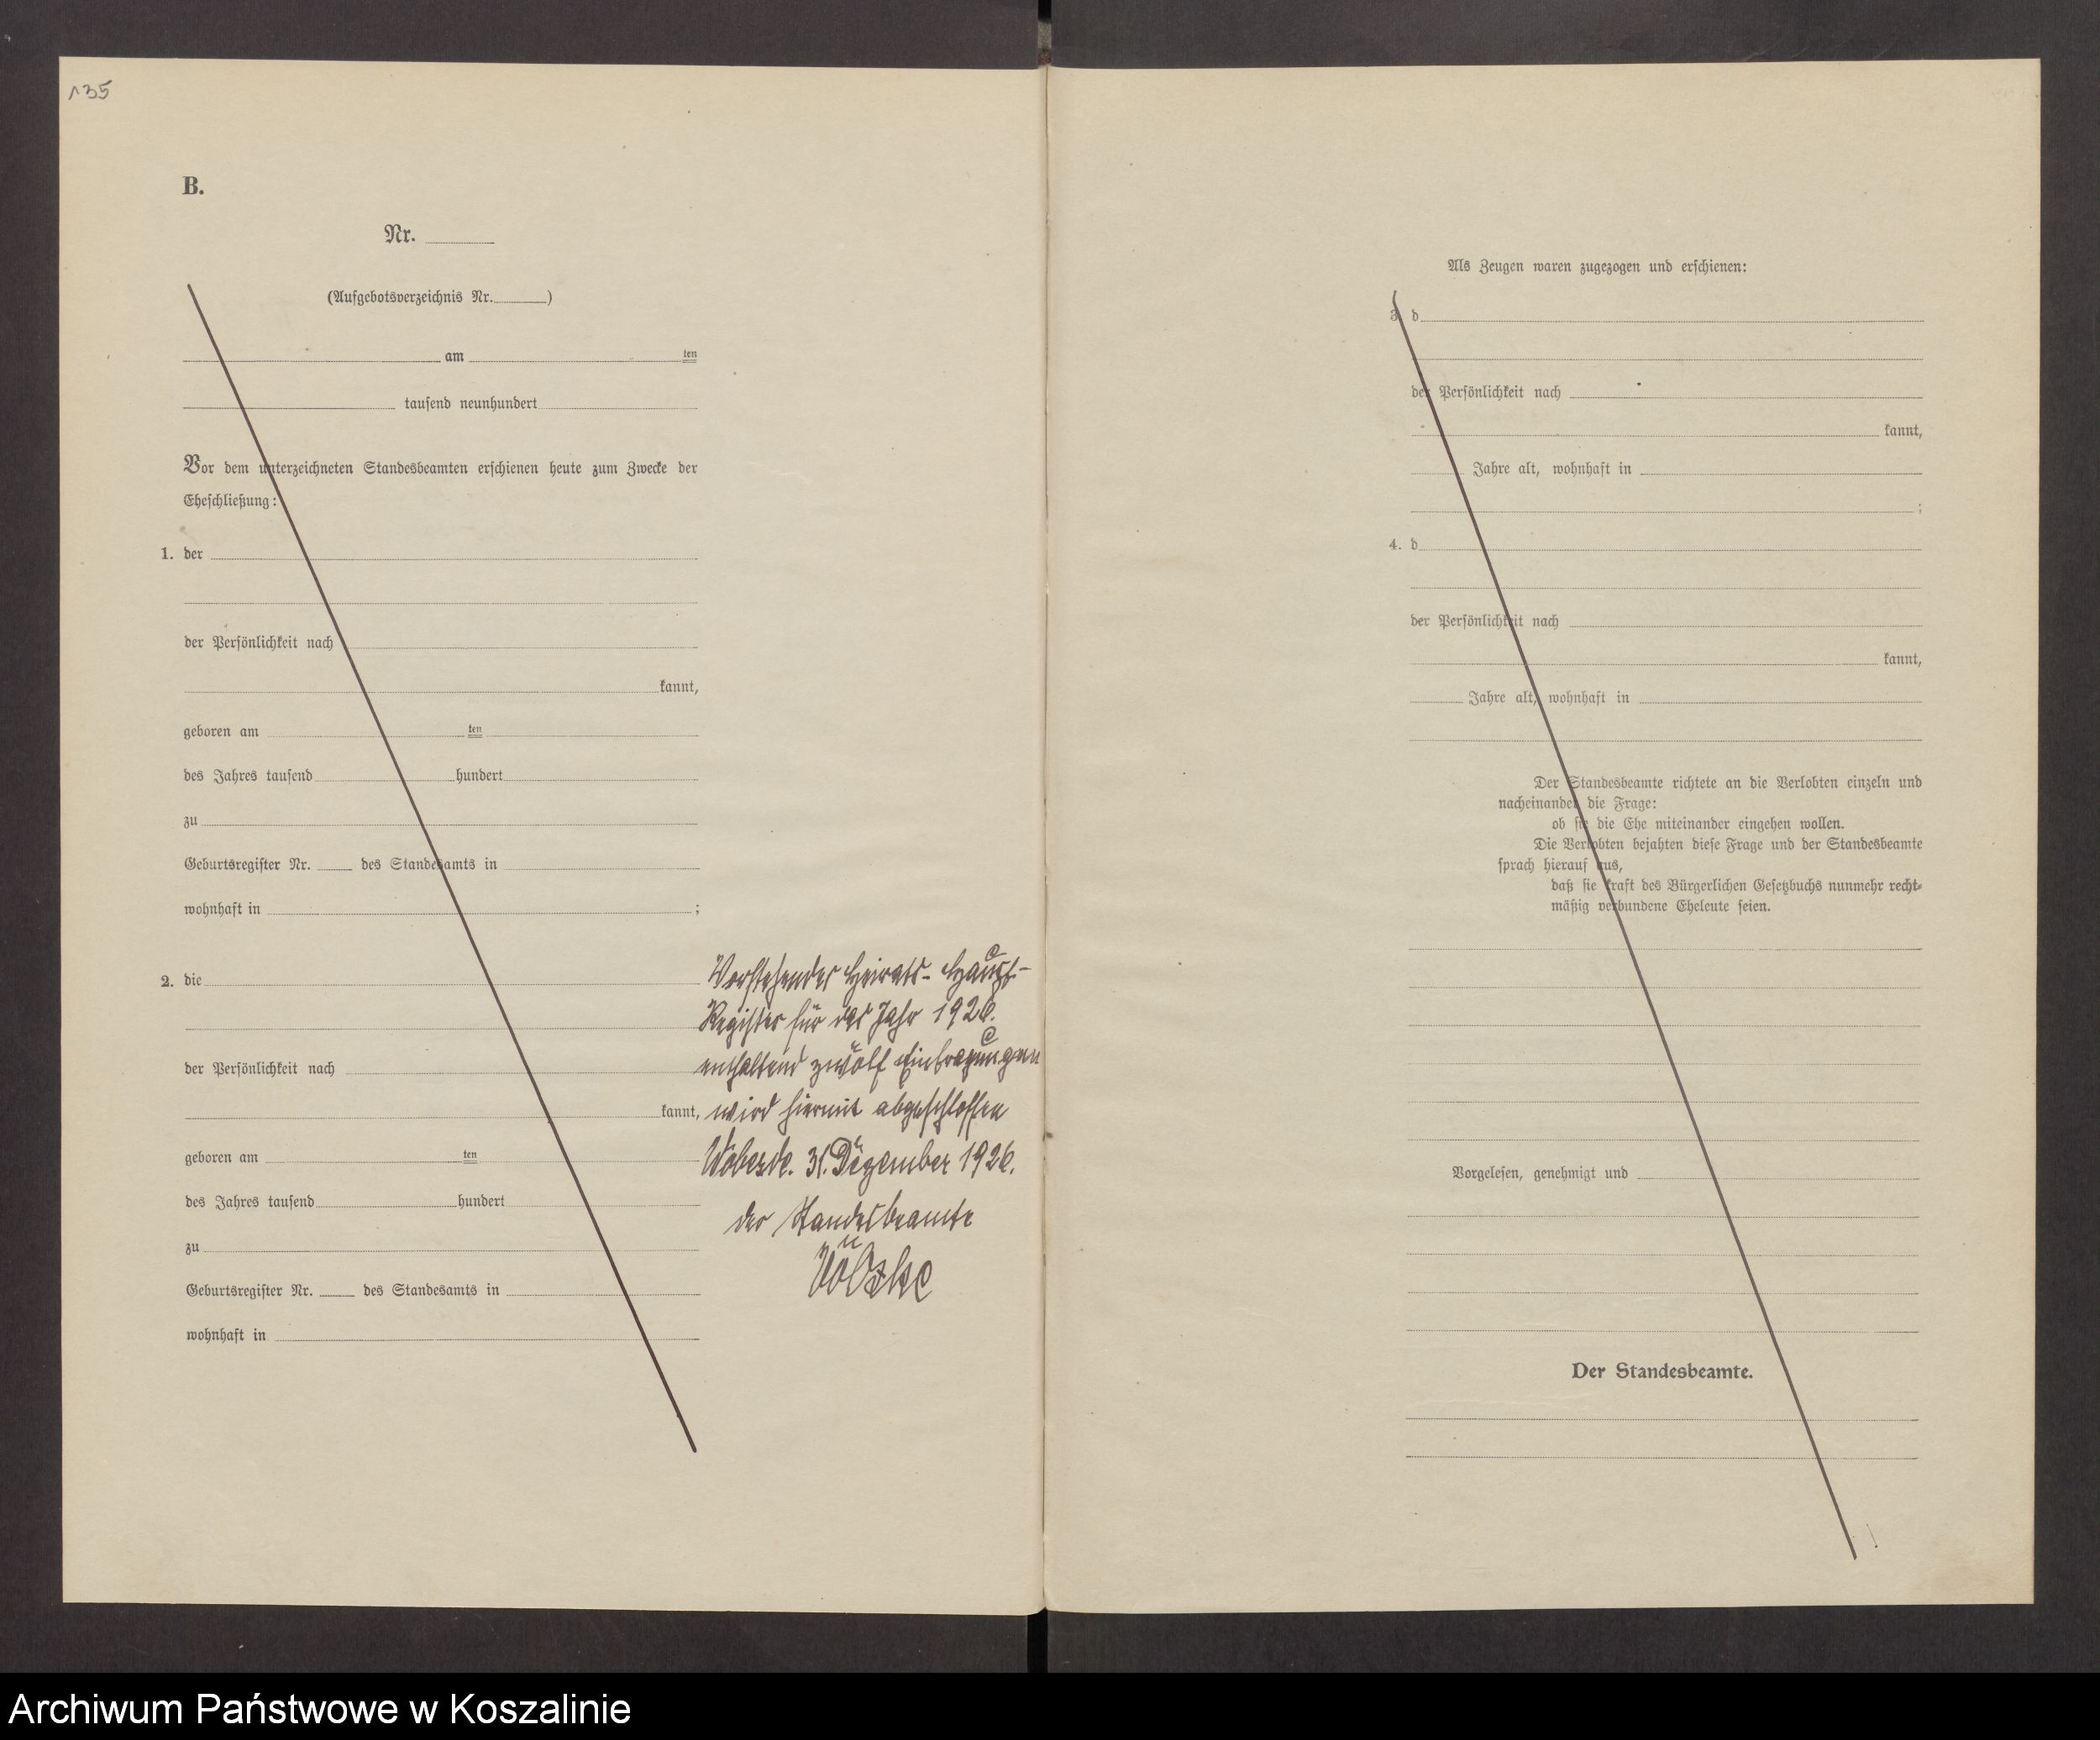 135
B.
Nr.
(Aufgebotsverzeichnis Nr. )
am ten
tausend neunhundert
Vor dem unterzeichneten Standesbeamten erschienen heute zum Zwecke der
Eheschließung:
1. der
der Persönlichkeit nach
kannt,
geboren am ten
des Jahres tausend hundert
zu
Geburtsregister Nr. des Standesamts in
wohnhaft in ;
2. die
der Persönlichkeit nach
kannt,
geboren am ten
des Jahres tausend hundert
zu
Geburtsregister Nr. des Standesamts in
wohnhaft in
Vorstehendes Heirats-Haupt-
Register für das Jahr 1926.
enthaltend zwölf Eintragungen
wird hiermit abgeschlossen
31. Dezember 1926.
der Standesbeamte
Als Zeugen waren zugezogen und erschienen:
3. d
der Persönlichkeit nach
kannt,
Jahre alt, wohnhaft in
;
4. d
der Persönlichkeit nach
kannt,
Jahre alt, wohnhaft in
Der Standesbeamte richtete an die Verlobten einzeln und
nacheinander die Frage:
ob sie die Ehe miteinander eingehen wollen.
Die Verlobten bejahten diese Frage und der Standesbeamte
sprach hierauf aus,
daß sie kraft des Bürgerlichen Gesetzbuchs nunmehr recht-
mäßig verbundene Eheleute seien.
Vorgelesen, genehmigt und
Der Standesbeamte.
Archiwum Państwowe w Koszalinie